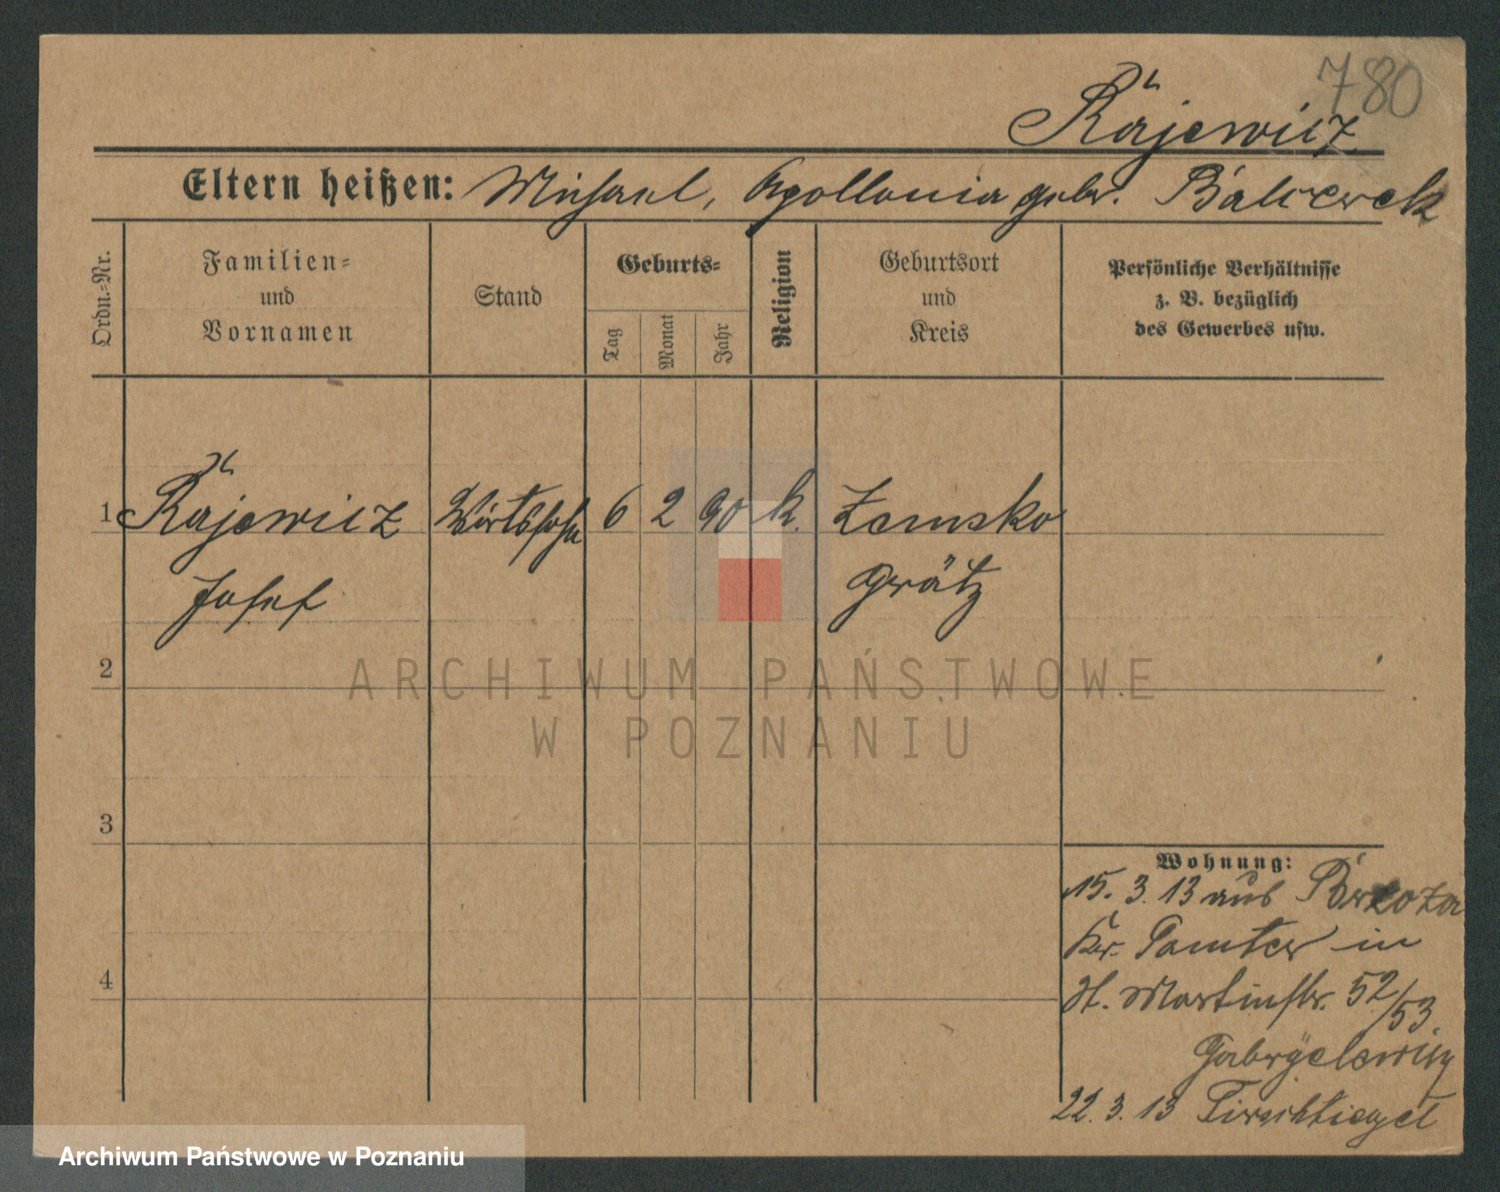 780
Räjewicz
Eltern heißen: Michael, Apollonia gebr. Balcerek
Ordn.-Nr.
Familien-
und
Vornamen
Stand
Geburts-
Tag
Monat
Jahr
Religion
Geburtsort
und
Kreis
Persönliche Verhältnisse
z. B. bezüglich
des Gewerbes usw.
1 Räjewicz Wirtssohn 6 2 90 k. Zemsko
Josef Grätz
2
3
4
Wohnung:
15. 3. 13 aus Brzoza
Kr. Samter in
St. Martinstr. 52/53.
22. 3. 13 Tirschtiegel
ARCHIWUM PAŃSTWOWE
W POZNANIU
Archiwum Państwowe w Poznaniu